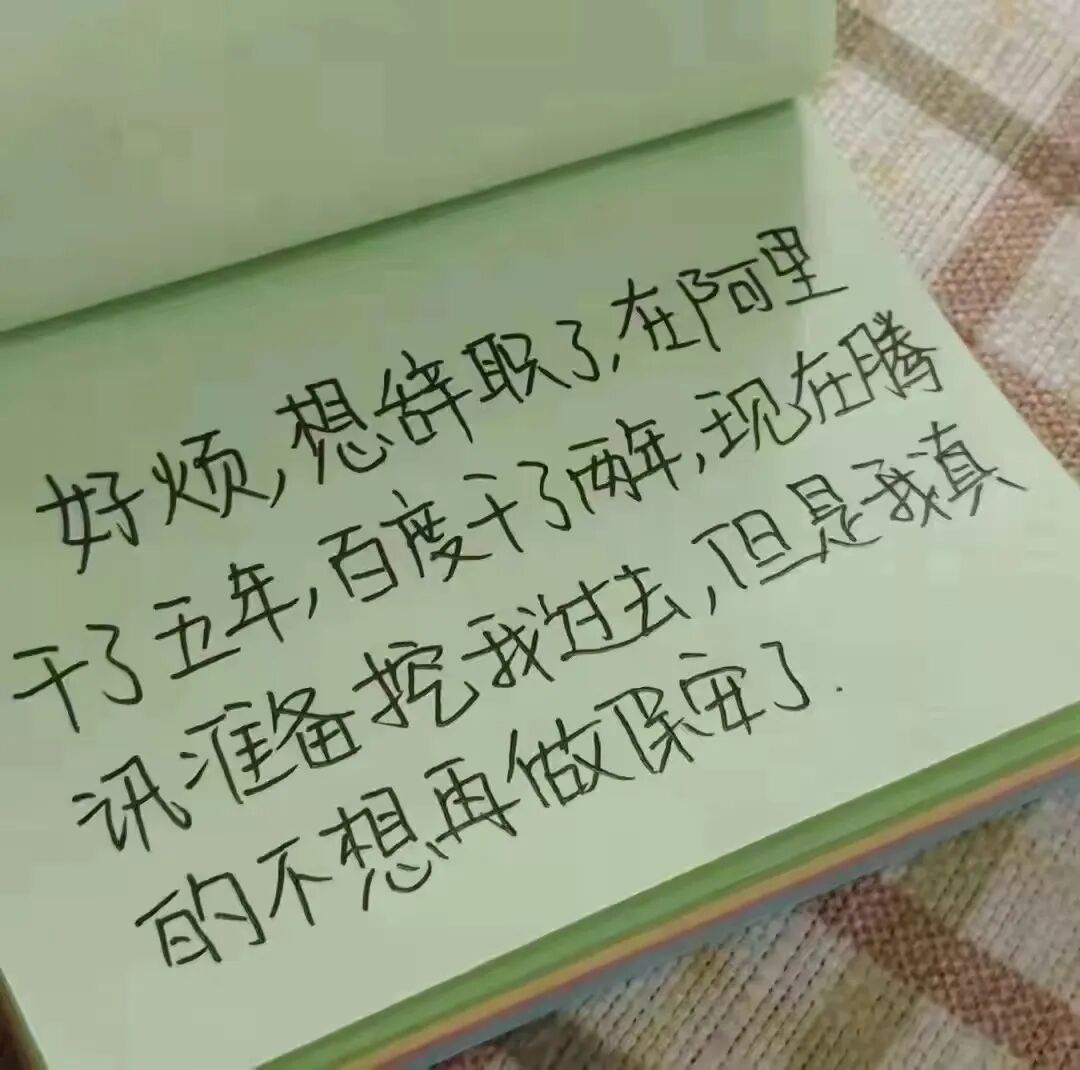 好烦,想辞职了,在阿里
干了五年,百度干了两年,现在腾
讯准备挖我过去,但是我真
的不想再做保安了.